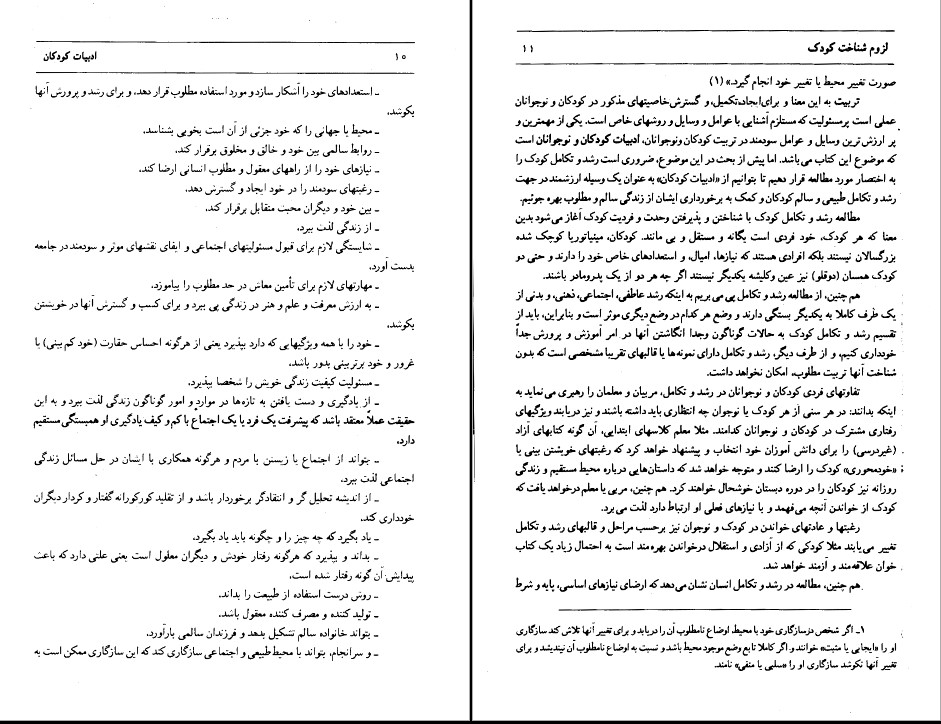 ۱۰ ادبیات کودکان
ـ استعدادهای خود را آشکار سازد و مورد استفاده مطلوب قرار دهد، و برای رشد و پرورش آنها
بکوشد.
ـ محیط یا جهانی را که خود جزئی از آن است بخوبی بشناسد.
ـ روابط سالمی بین خود و خالق و مخلوق برقرار کند.
ـ نیازهای خود را از راههای معقول و مطلوب انسانی ارضا کند.
ـ رغبتهای سودمند را در خود ایجاد و گسترش دهد.
ـ بین خود و دیگران محبت متقابل برقرار کند.
ـ از زندگی لذت ببرد.
ـ شایستگی لازم برای قبول مسئولیتهای اجتماعی و ایفای نقشهای موثر و سودمند در جامعه
بدست آورد.
ـ مهارتهای لازم برای تأمین معاش در حد مطلوب را بیاموزد.
ـ به ارزش معرفت و علم و هنر در زندگی پی ببرد و برای کسب و گسترش آنها در خویشتن
بکوشد.
ـ خود را با همه ویژگیهایی که دارد بپذیرد یعنی از هرگونه احساس حقارت (خود کم بینی) یا
غرور و خود برتربینی بدور باشد.
ـ مسئولیت کیفیت زندگی خویش را شخصا بپذیرد.
ـ از یادگیری و دست یافتن به تازه‌ها در موارد و امور گوناگون زندگی لذت ببرد و به این
حقیقت عملاً معتقد باشد که پیشرفت یک فرد یا یک اجتماع با کم و کیف یادگیری او همبستگی مستقیم
دارد.
ـ بتواند از اجتماع یا زیستن با مردم و هرگونه همکاری با ایشان در حل مسائل زندگی
اجتماعی لذت ببرد.
ـ از اندیشه تحلیل گر و انتقادگر برخوردار باشد و از تقلید کورکورانه گفتار و کردار دیگران
خودداری کند.
ـ یاد بگیرد که چه چیز را و چگونه باید یاد بگیرد.
ـ بداند و بپذیرد که هرگونه رفتار خودش و دیگران معلول است یعنی علتی دارد که باعث
پیدایش آن گونه رفتار شده است.
ـ روش درست استفاده از طبیعت را بداند.
ـ تولید کننده و مصرف کننده معقول باشد.
ـ بتواند خانواده سالم تشکیل بدهد و فرزندان سالمی بارآورد.
ـ و سرانجام، بتواند با محیط طبیعی و اجتماعی سازگاری کند که این سازگاری ممکن است به
لزوم شناخت کودک ۱۱
صورت تغییر محیط یا تغییر خود انجام گیرد.» (۱)
تربیت به این معنا و برای ایجاد، تکمیل، و گسترش خاصیتهای مذکور در کودکان و نوجوانان
عملی است پرمسئولیت که مستلزم آشنایی با عوامل و وسایل و روشهای خاص است. یکی از مهمترین و
پر ارزش ترین وسایل و عوامل سودمند در تربیت کودکان ونوجوانان، ادبیات کودکان و نوجوانان است
که موضوع این کتاب می‌باشد. اما پیش از بحث در این موضوع، ضروری است رشد و تکامل کودک را
به اختصار مورد مطالعه قرار دهیم تا بتوانیم از «ادبیات کودکان» به عنوان یک وسیله ارزشمند در جهت
رشد و تکامل طبیعی و سالم کودکان و کمک به برخورداری ایشان از زندگی سالم و مطلوب بهره جوئیم.
مطالعه رشد و تکامل کودک با شناختن و پذیرفتن وحدت و فردیت کودک آغاز می‌شود بدین
معنا که هر کودک، خود فردی است یگانه و مستقل و بی مانند. کودکان، مینیاتوریا کوچک شده
بزرگسالان نیستند بلکه افرادی هستند که نیازها، امیال، و استعدادهای خاص خود را دارند و حتی دو
کودک همسان (دوقلو) نیز عین وکلیشه یکدیگر نیستند اگر چه هر دو از یک پدرومادر باشند.
هم چنین، از مطالعه رشد و تکامل پی می بریم به اینکه رشد عاطفی، اجتماعی، ذهنی، و بدنی از
یک طرف کاملا به یکدیگر بستگی دارند و وضع هر کدام در وضع دیگری موثر است و بنابراین، باید از
تقسیم رشد و تکامل کودک به حالات گوناگون وجدا انگاشتن آنها در امر آموزش و پرورش جداً
خودداری کنیم، و از طرف دیگر، رشد و تکامل دارای نمونه‌ها یا قالبهای تقریبا مشخصی است که بدون
شناخت آنها تربیت مطلوب، امکان نخواهد داشت.
تفاوتهای فردی کودکان و نوجوانان در رشد و تکامل، مربیان و معلمان را رهبری می نماید به
اینکه بدانند: در هر سنی از هر کودک یا نوجوان چه انتظاری باید داشته باشند و نیز دریابند ویژگیهای
رفتاری مشترک در کودکان و نوجوانان کدامند. مثلا معلم کلاسهای ابتدایی، آن گونه کتابهای آزاد
(غیردرسی) را برای دانش آموزان خود انتخاب و پیشنهاد خواهد کرد که رغبتهای خویشتن بینی یا
«خودمحوری» کودک را ارضا کنند و متوجه خواهد شد که داستان‌هایی درباره محیط مستقیم و زندگی
روزانه نیز کودکان را در دوره دبستان خوشحال خواهند کرد. هم چنین، مربی یا معلم درخواهد یافت که
کودک از خواندن آنچه می‌فهمد و با نیازهای فعلی او ارتباط دارد لذت می‌برد.
رغبتها و عادتهای خواندن در کودک و نوجوان نیز برحسب مراحل و قالبهای رشد و تکامل
تغییر می‌یابند مثلا کودکی که از آزادی و استقلال درخواندن بهره‌مند است به احتمال زیاد یک کتاب
خوان علاقه‌مند و آزمند خواهد شد.
هم چنین، مطالعه در رشد و تکامل انسان نشان می‌دهد که ارضای نیازهای اساسی، پایه و شرط
۱ـ اگر شخص درسازگاری خود با محیط، اوضاع نامطلوب آن را دریابد و برای تغییر آنها تلاش کند سازگاری
او را «ایجابی یا مثبت» خوانند و اگر کاملا تابع وضع موجود محیط باشد و نسبت به اوضاع نامطلوب آن نیندیشد و برای
تغییر آنها نکوشد سازگاری او را «سلبی یا منفی» نامند.